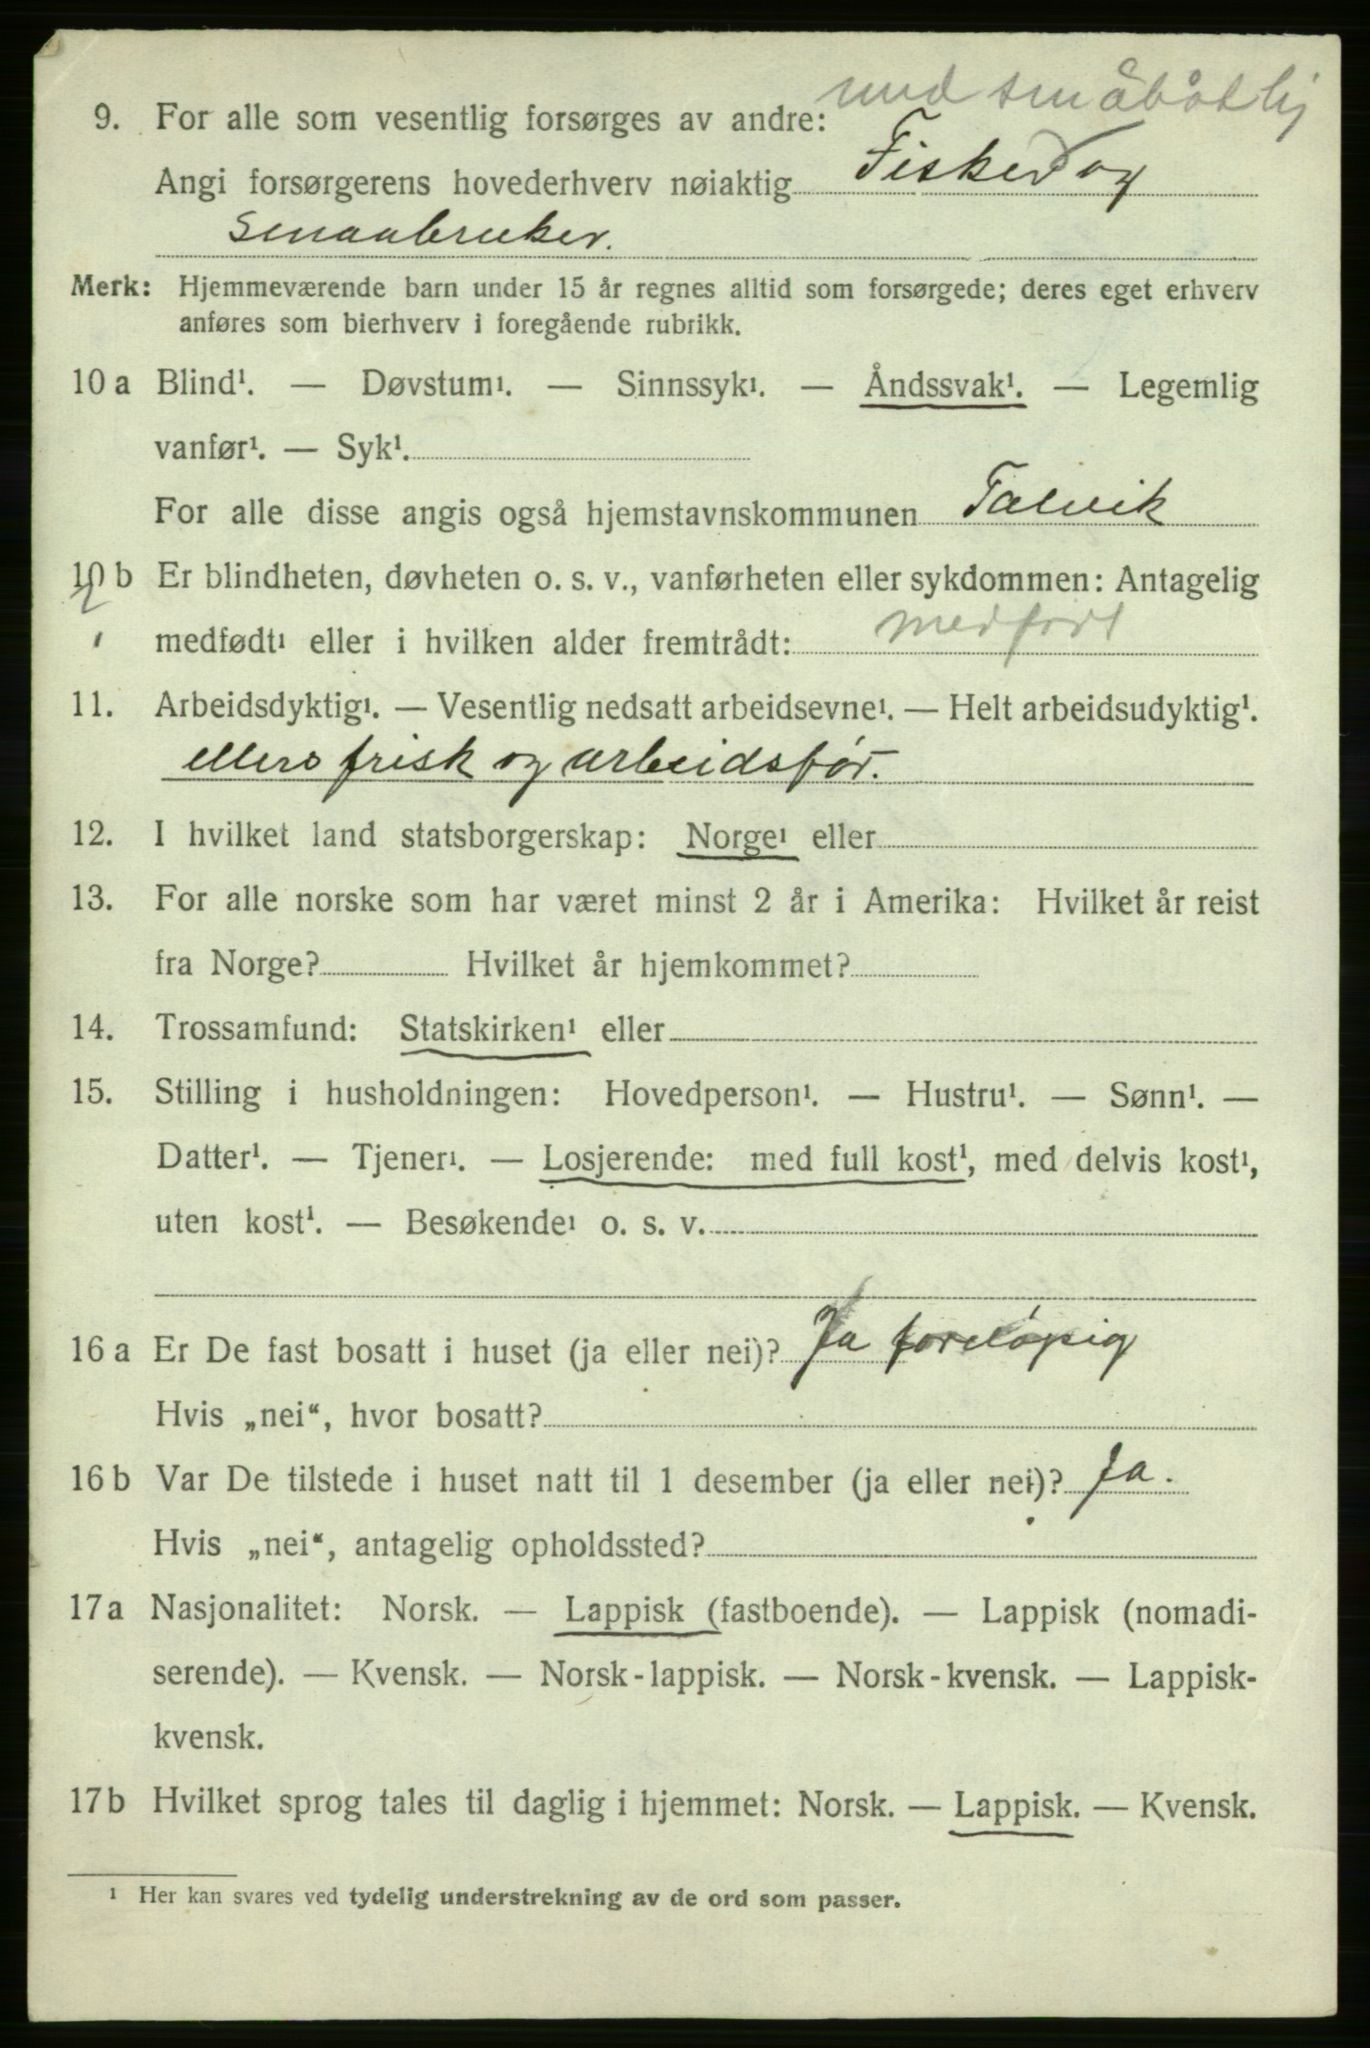 med småbåt
9. For alle som vesentlig forsørges av andre:
Angi forsørgerens hovederhverv nøiaktig Fisker og
smaabruker.
Merk: Hjemmeværende barn under 15 år regnes alltid som forsørgede; deres eget erhverv
anføres som bierhverv i foregående rubrikk.
10 a Blind¹. — Døvstum¹. — Sinnssyk¹. — Åndssvak¹. — Legemlig
vanfør¹. — Syk¹.
For alle disse angis også hjemstavnskommunen Talvik
10 b Er blindheten, døvheten o. s. v., vanførheten eller sykdommen: Antagelig
medfødt¹ eller i hvilken alder fremtrådt: medfødt
11. Arbeidsdyktig¹. — Vesentlig nedsatt arbeidsevne¹. — Helt arbeidsudyktig¹.
ellers frisk og arbeidsfør.
12. I hvilket land statsborgerskap: Norge¹ eller
13. For alle norske som har været minst 2 år i Amerika: Hvilket år reist
fra Norge? Hvilket år hjemkommet?
14. Trossamfund: Statskirken¹ eller
15. Stilling i husholdningen: Hovedperson¹. — Hustru¹. — Sønn¹. —
Datter¹. — Tjener¹. — Losjerende: med full kost¹, med delvis kost¹,
uten kost¹. — Besøkende¹ o. s. v.
16 a Er De fast bosatt i huset (ja eller nei)? Ja foreløpig
Hvis „nei“, hvor bosatt?
16 b Var De tilstede i huset natt til 1 desember (ja eller nei)? Ja.
Hvis „nei“, antagelig opholdssted?
17 a Nasjonalitet: Norsk. — Lappisk (fastboende). — Lappisk (nomadi-
serende). — Kvensk. — Norsk-lappisk. — Norsk-kvensk. — Lappisk-
kvensk.
17 b Hvilket sprog tales til daglig i hjemmet: Norsk. — Lappisk. — Kvensk.
¹ Her kan svares ved tydelig understrekning av de ord som passer.